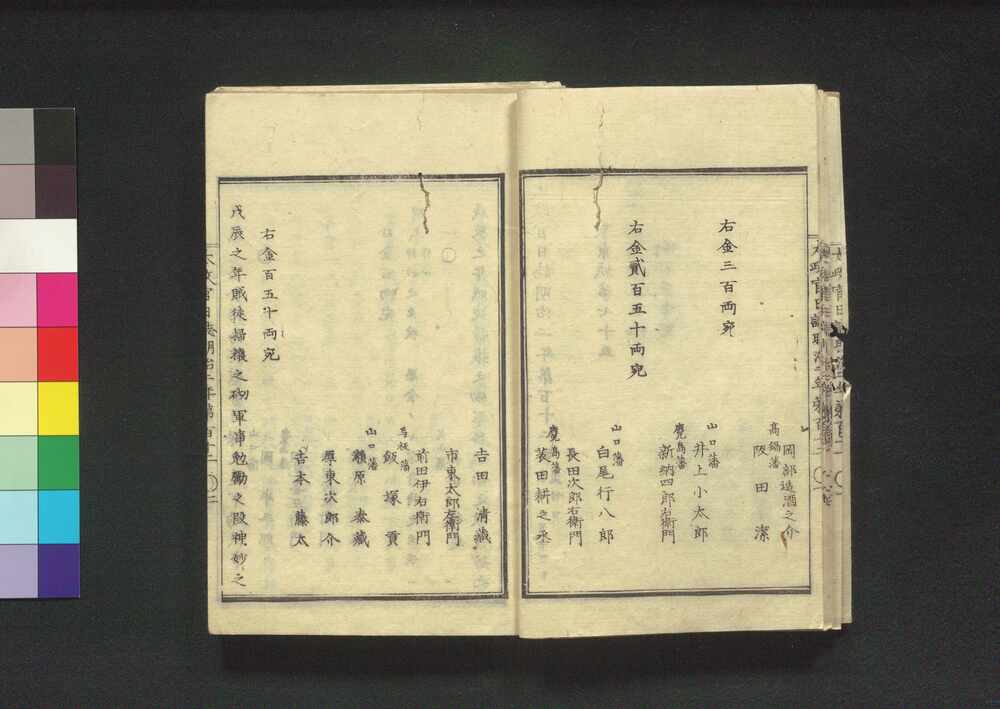 岡部造酒之介
高鍋藩
阪田潔
右金三百両宛
山口藩
井上小太郎
鹿島藩
新納四郎右衛門
右金貳百五十両宛
山口藩
白尾行八郎
長田次郎右衛門
鹿島藩
装田耕之丞
吉田清蔵
市東太郎左衛門
前田伊右衛門
飯塚貢
山口藩
原泰蔵
東次郎介
吉本藤太
右金百五十両宛
戊辰之年賊徒掃攘之砌軍事勉勵之段神妙之